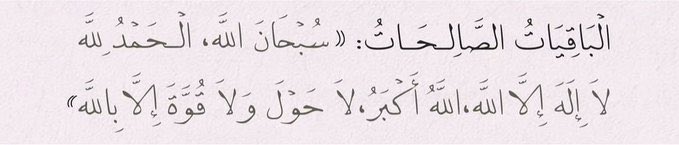 الْبَاقِيَاتُ الصَّالِـحَـاتُ: «سُبْحَانَ اللَّه، الْـحَمْدُ لِلَّه
لاَ إِلَهَ إِلَّا اللَّه،اللَّهُ أَكْبَرُ،لاَ حَوْلَ وَلاَ قُوَّةَ إِلَّا بِاللَّه»